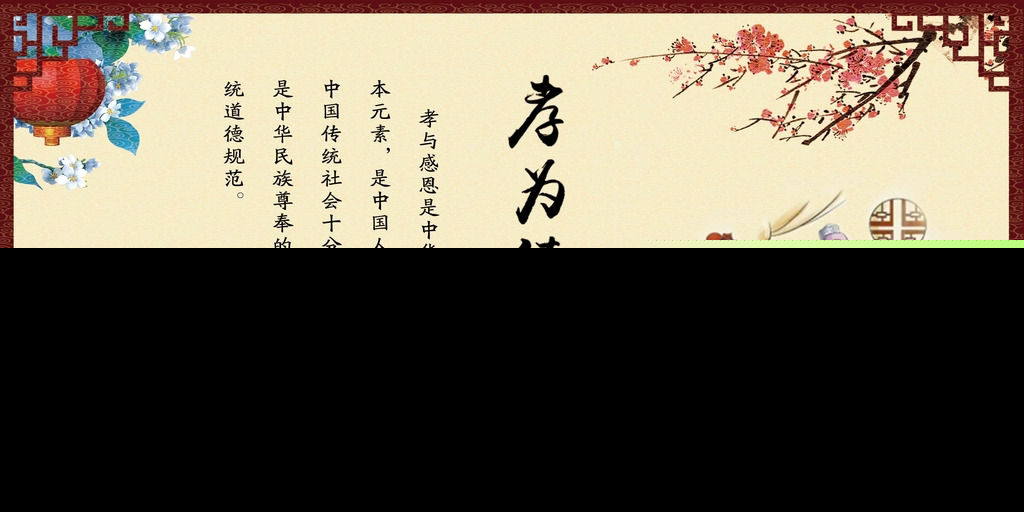 孝为
孝与感恩是中
本元素，是中国人
中国传统社会十分
是中华民族尊奉的
统道德规范。